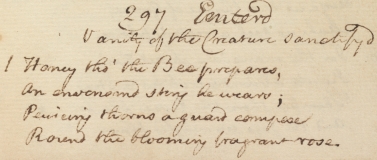 297 Enterd
Vanity of the Creature Sanctifyd
1 Honey tho' the Bee prepares,
An envenomd sting he wears;
Peircing thorns a guard compose
Round the blooming fragrant rose.